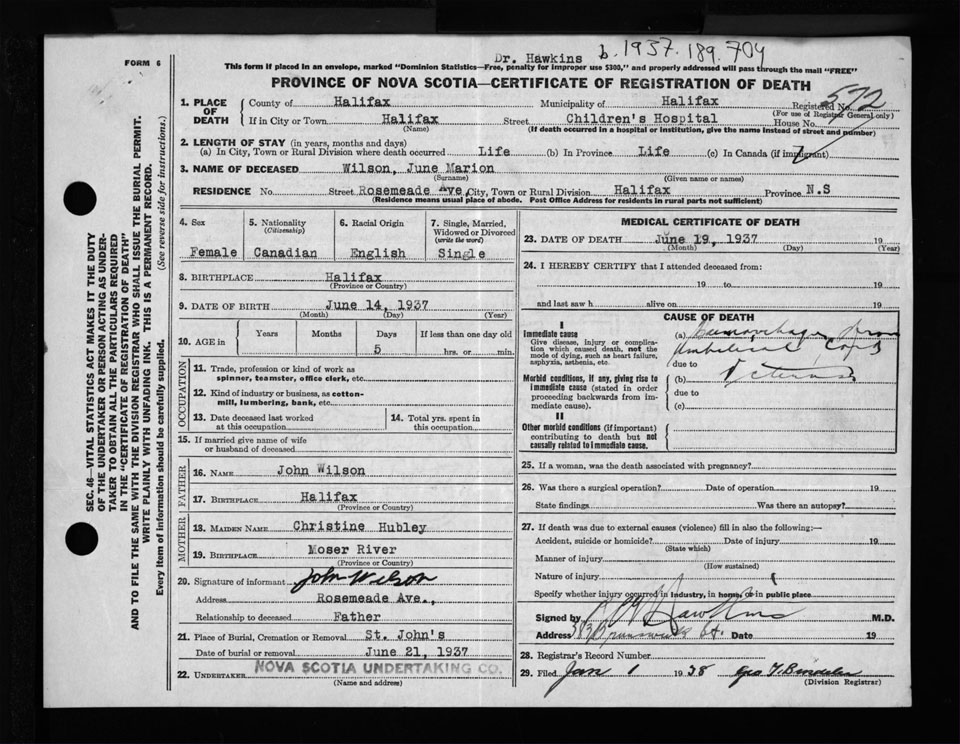 FORM 6
Dr. Hawkins b.1937.189.704
This form if placed in an envelope, marked "Dominion Statistics—Free, penalty for improper use $300," and properly addressed will pass through the mail "FREE"
PROVINCE OF NOVA SCOTIA—CERTIFICATE OF REGISTRATION OF DEATH
SEC. 46—VITAL STATISTICS ACT MAKES IT THE DUTY
OF THE UNDERTAKER OR PERSON ACTING AS UNDER-
TAKER TO OBTAIN ALL THE PARTICULARS REQUIRED
IN THE "CERTIFICATE OF REGISTRATION OF DEATH"
AND TO FILE THE SAME WITH THE DIVISION REGISTRAR WHO SHALL ISSUE THE BURIAL PERMIT.
WRITE PLAINLY WITH UNFADING INK. THIS IS A PERMANENT RECORD.
Every item of information should be carefully supplied. (See reverse side for instructions.)
1. PLACE OF DEATH
County of Halifax Municipality of Halifax Registered No. 572
(For use of Registrar General only)
If in City or Town Halifax Street Children's Hospital House No.
(Name) (If death occurred in a hospital or institution, give the name instead of street and number)
2. LENGTH OF STAY (in years, months and days)
(a) In City, Town or Rural Division where death occurred Life (b) In Province Life (c) In Canada (if immigrant)
3. NAME OF DECEASED Wilson, June Marion
(Surname) (Given name or names)
RESIDENCE No. Street Rosemeade Ave, City, Town or Rural Division Halifax Province N.S
(Residence means usual place of abode. Post Office Address for residents in rural parts not sufficient)
4. Sex 5. Nationality (Citizenship) 6. Racial Origin 7. Single, Married, Widowed or Divorced (write the word)
Female Canadian English Single
8. BIRTHPLACE Halifax
(Province or Country)
9. DATE OF BIRTH June 14, 1937
(Month) (Day) (Year)
10. AGE in Years Months Days If less than one day old
5 hrs. or min.
OCCUPATION
11. Trade, profession or kind of work as
spinner, teamster, office clerk, etc.
12. Kind of industry or business, as cotton-
mill, lumbering, bank, etc.
13. Date deceased last worked
at this occupation
14. Total yrs. spent in
this occupation
15. If married give name of wife
or husband of deceased
FATHER
16. NAME John Wilson
17. BIRTHPLACE Halifax
(Province or Country)
MOTHER
18. MAIDEN NAME Christine Hubley
19. BIRTHPLACE Moser River
(Province or Country)
20. Signature of informant John Wilson
Address Rosemeade Ave.,
Relationship to deceased Father
21. Place of Burial, Cremation or Removal St. John's
Date of burial or removal June 21, 1937
22. UNDERTAKER NOVA SCOTIA UNDERTAKING CO.
(Name and address)
MEDICAL CERTIFICATE OF DEATH
23. DATE OF DEATH June 19, 1937 19
(Month) (Day) (Year)
24. I HEREBY CERTIFY that I attended deceased from:
19 to 19
and last saw h alive on 19
CAUSE OF DEATH
I
Immediate cause
Give disease, injury or complica-
tion which caused death, not the
mode of dying, such as heart failure,
asphyxia, asthenia, etc.
(a) Hemorrhage from
Umbilical Cord
due to
Morbid conditions, if any, giving rise to
immediate cause (stated in order
proceeding backwards from im-
mediate cause).
(b) Icterus
due to
(c)
II
Other morbid conditions (if important)
contributing to death but not
causally related to immediate cause.
25. If a woman, was the death associated with pregnancy?
26. Was there a surgical operation? Date of operation 19
State findings Was there an autopsy?
27. If death was due to external causes (violence) fill in also the following:—
Accident, suicide or homicide? Date of injury 19
(State which)
Manner of injury
(How sustained)
Nature of injury
Specify whether injury occurred in industry, in home, or in public place
Signed by Hawkins M.D.
Address Brunswick St. Date 19
28. Registrar's Record Number
29. Filed Jan 1 1938 Geo
(Division Registrar)